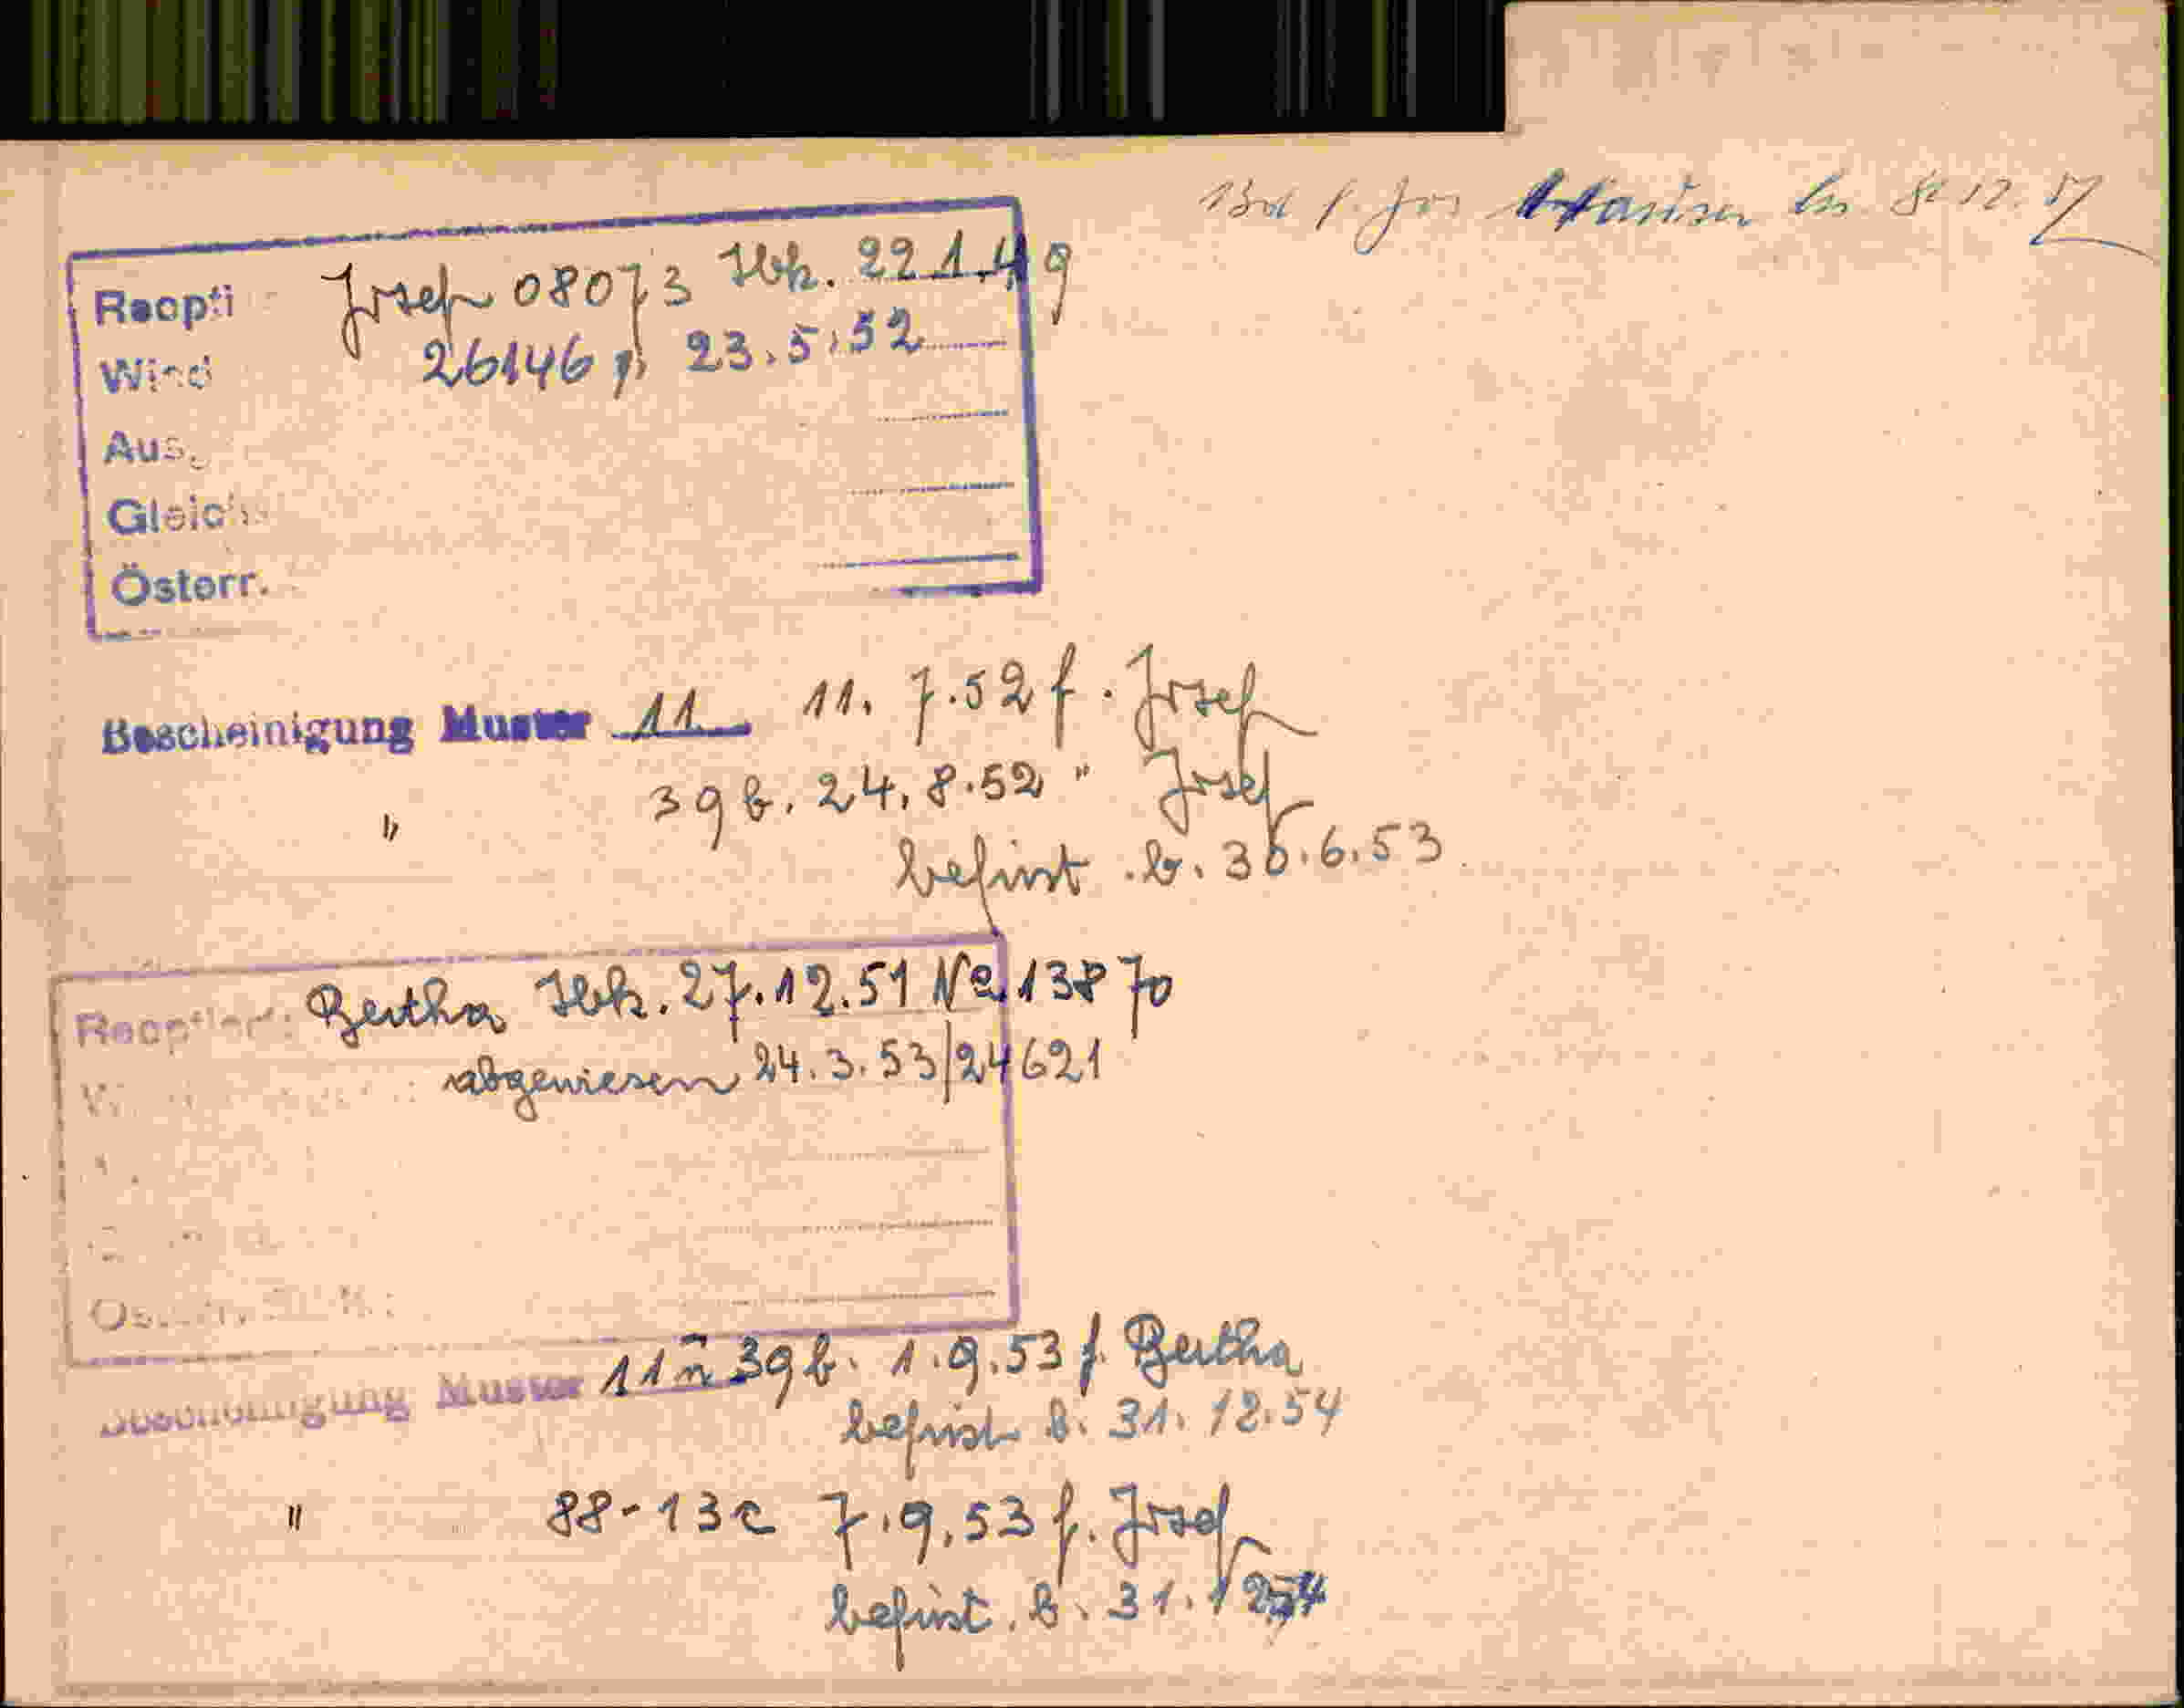 8. 12. 57
Reopti Josef 08073 Urk. 22.1.49
Wind 26146 p. 23.5.52
Aus
Gleich
Österr.
Bescheinigung Muster 11 11. 7.52 f. Josef
" 39 b. 24.8.52 " Josef
befrist. b. 30.6.53
Bertha Urk. 27.12.51 No 13870
abgewiesen 24.3.53/24621
Bescheinigung Muster 11 n 39 b. 1.9.53 f. Bertha
befrist b. 31.12.54
" 88-13c 7.9.53 f. Josef
befrist. b. 31.12.54